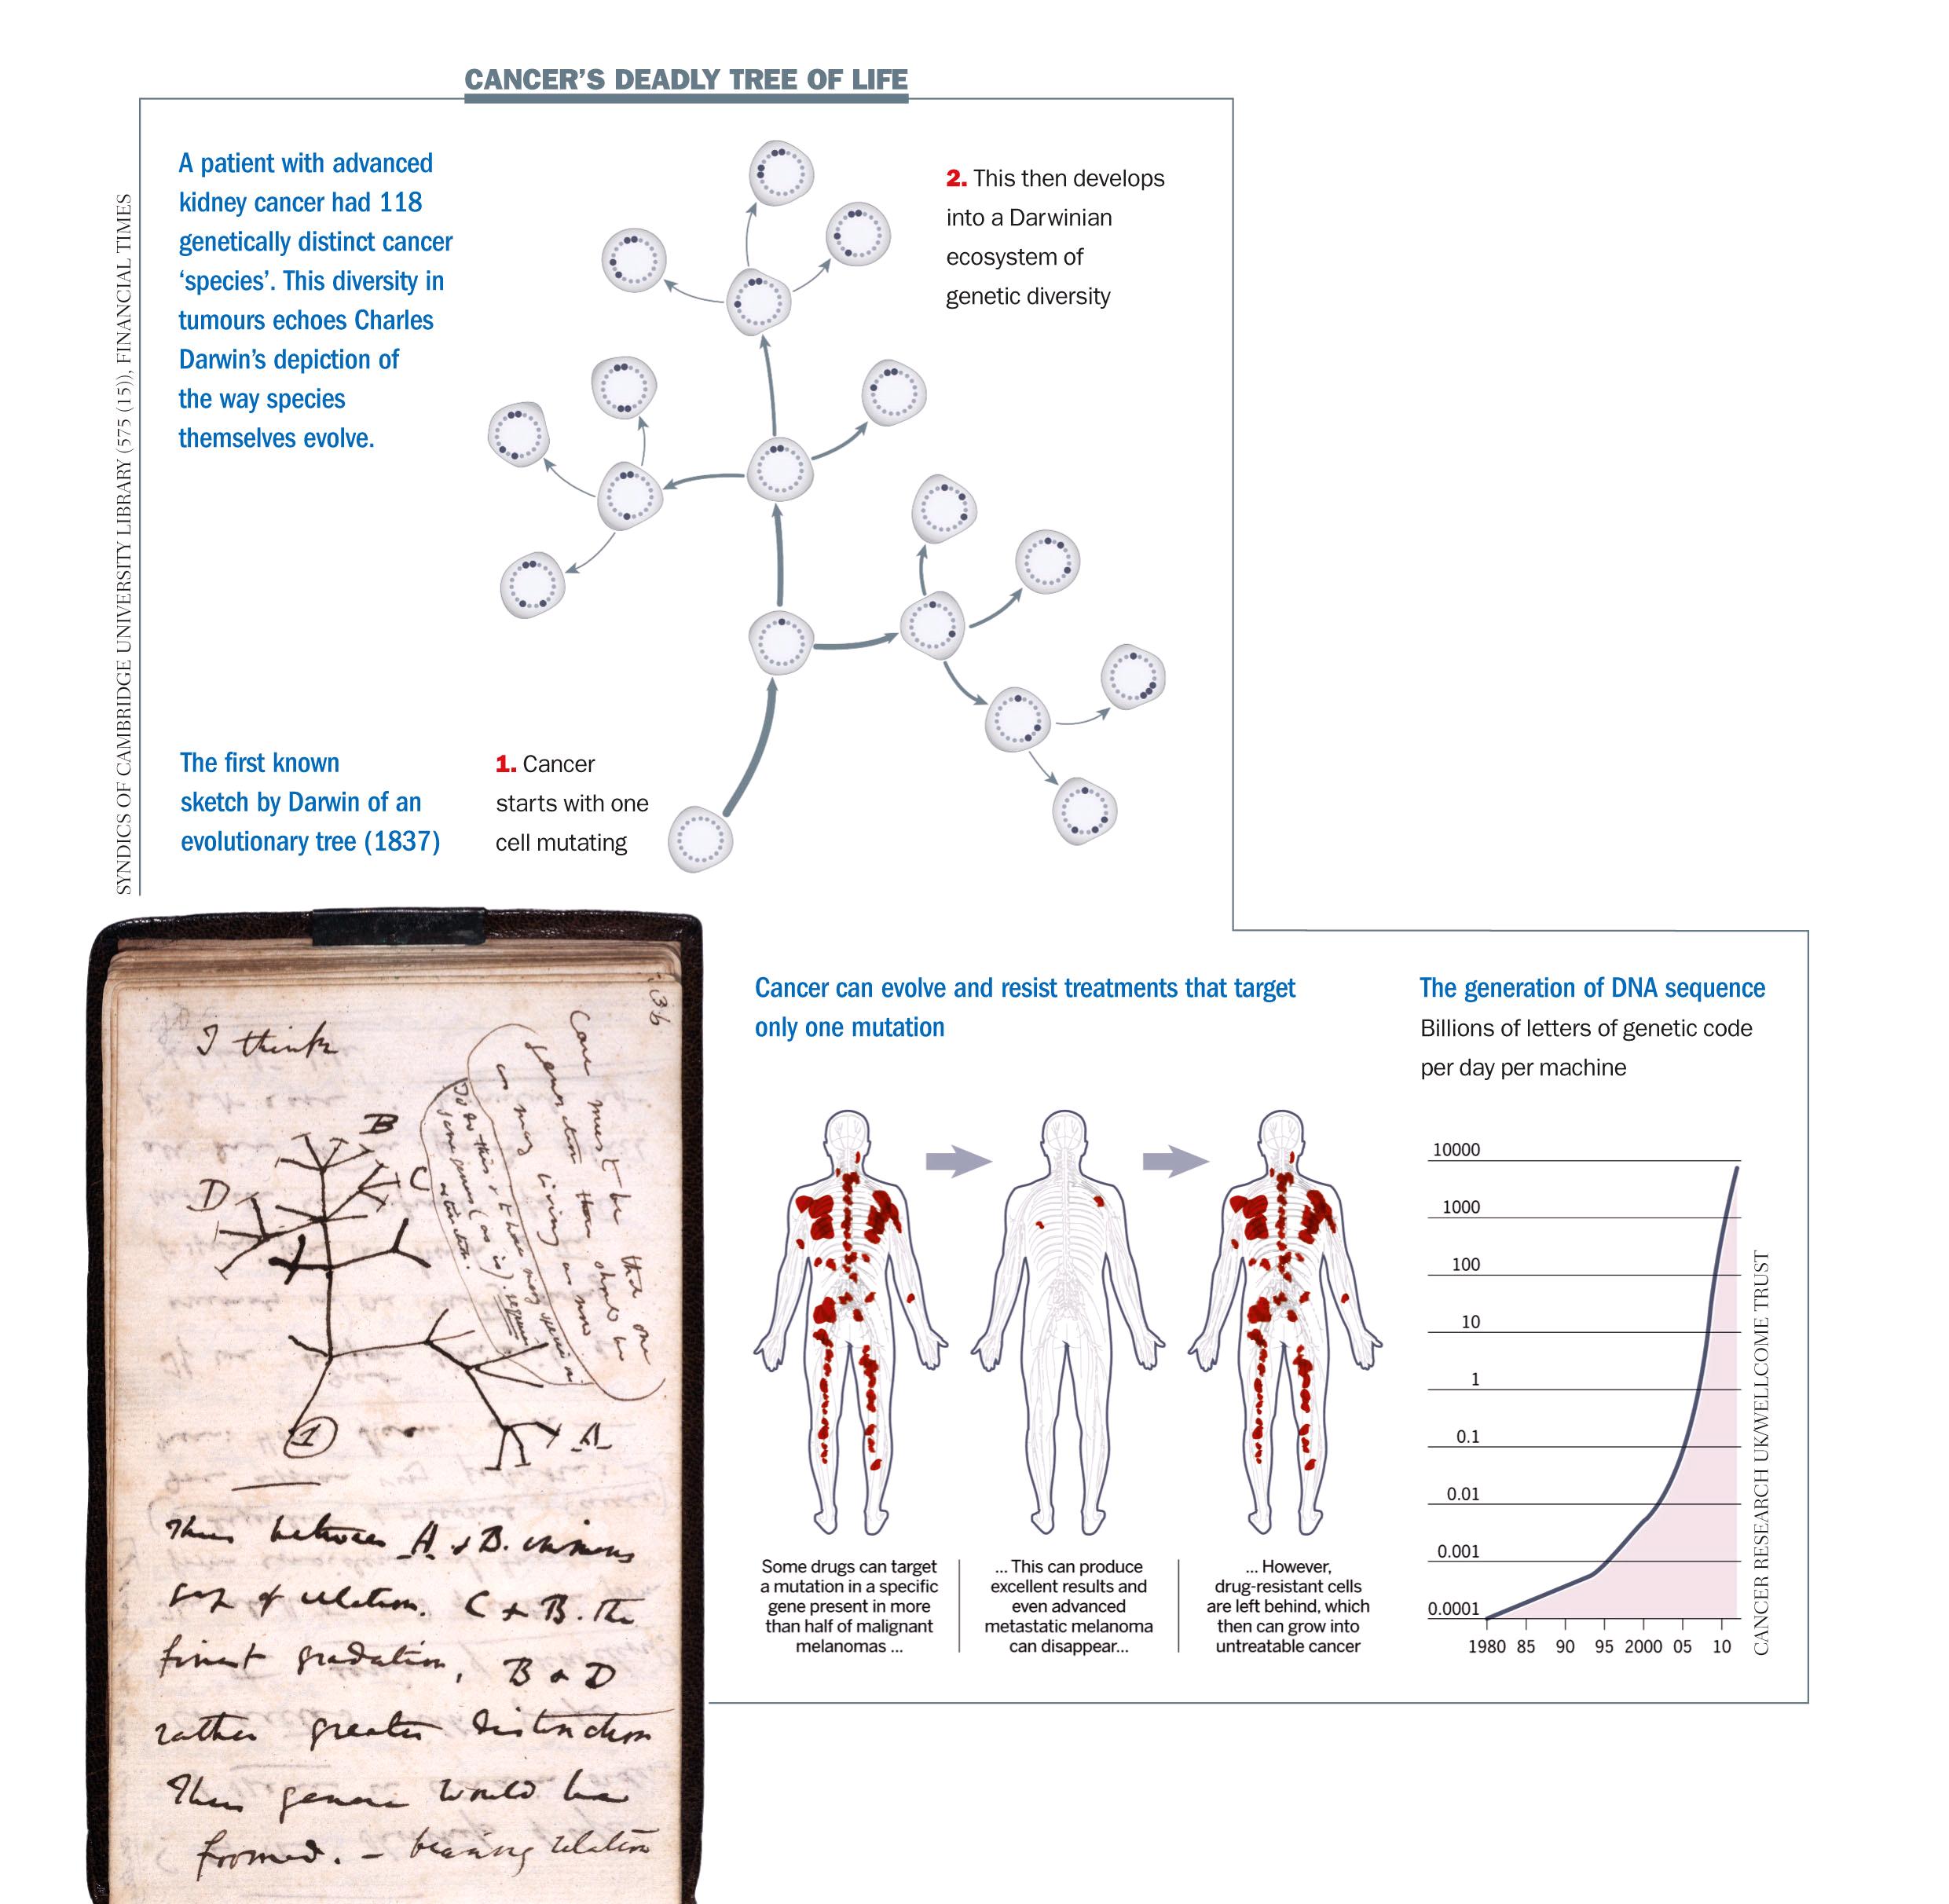 CANCER’S DEADLY TREE OF LIFE
A patient with advanced
kidney cancer had 118
genetically distinct cancer
‘species’. This diversity in
tumours echoes Charles
Darwin’s depiction of
the way species
themselves evolve.
2. This then develops
into a Darwinian
ecosystem of
genetic diversity
SYNDICS OF CAMBRIDGE UNIVERSITY LIBRARY (575 (15)), FINANCIAL TIMES
The first known
sketch by Darwin of an
evolutionary tree (1837)
1. Cancer
starts with one
cell mutating
36
I think
Case must be that one
generation then should be
as many living as now
To do this & to have many species in
same genus (as is). requires
extinction.
B
C
D
A
1
Thus between A & B. immens
gap of relation. C & B. the
finest gradation, B & D
rather greater distinction
Thus genera would be
formed. — bearing relation
Cancer can evolve and resist treatments that target
only one mutation
Some drugs can target
a mutation in a specific
gene present in more
than half of malignant
melanomas ...
... This can produce
excellent results and
even advanced
metastatic melanoma
can disappear...
... However,
drug-resistant cells
are left behind, which
then can grow into
untreatable cancer
The generation of DNA sequence
Billions of letters of genetic code
per day per machine
10000
1000
100
10
1
0.1
0.01
0.001
0.0001
1980 85 90 95 2000 05 10
CANCER RESEARCH UK/WELLCOME TRUST